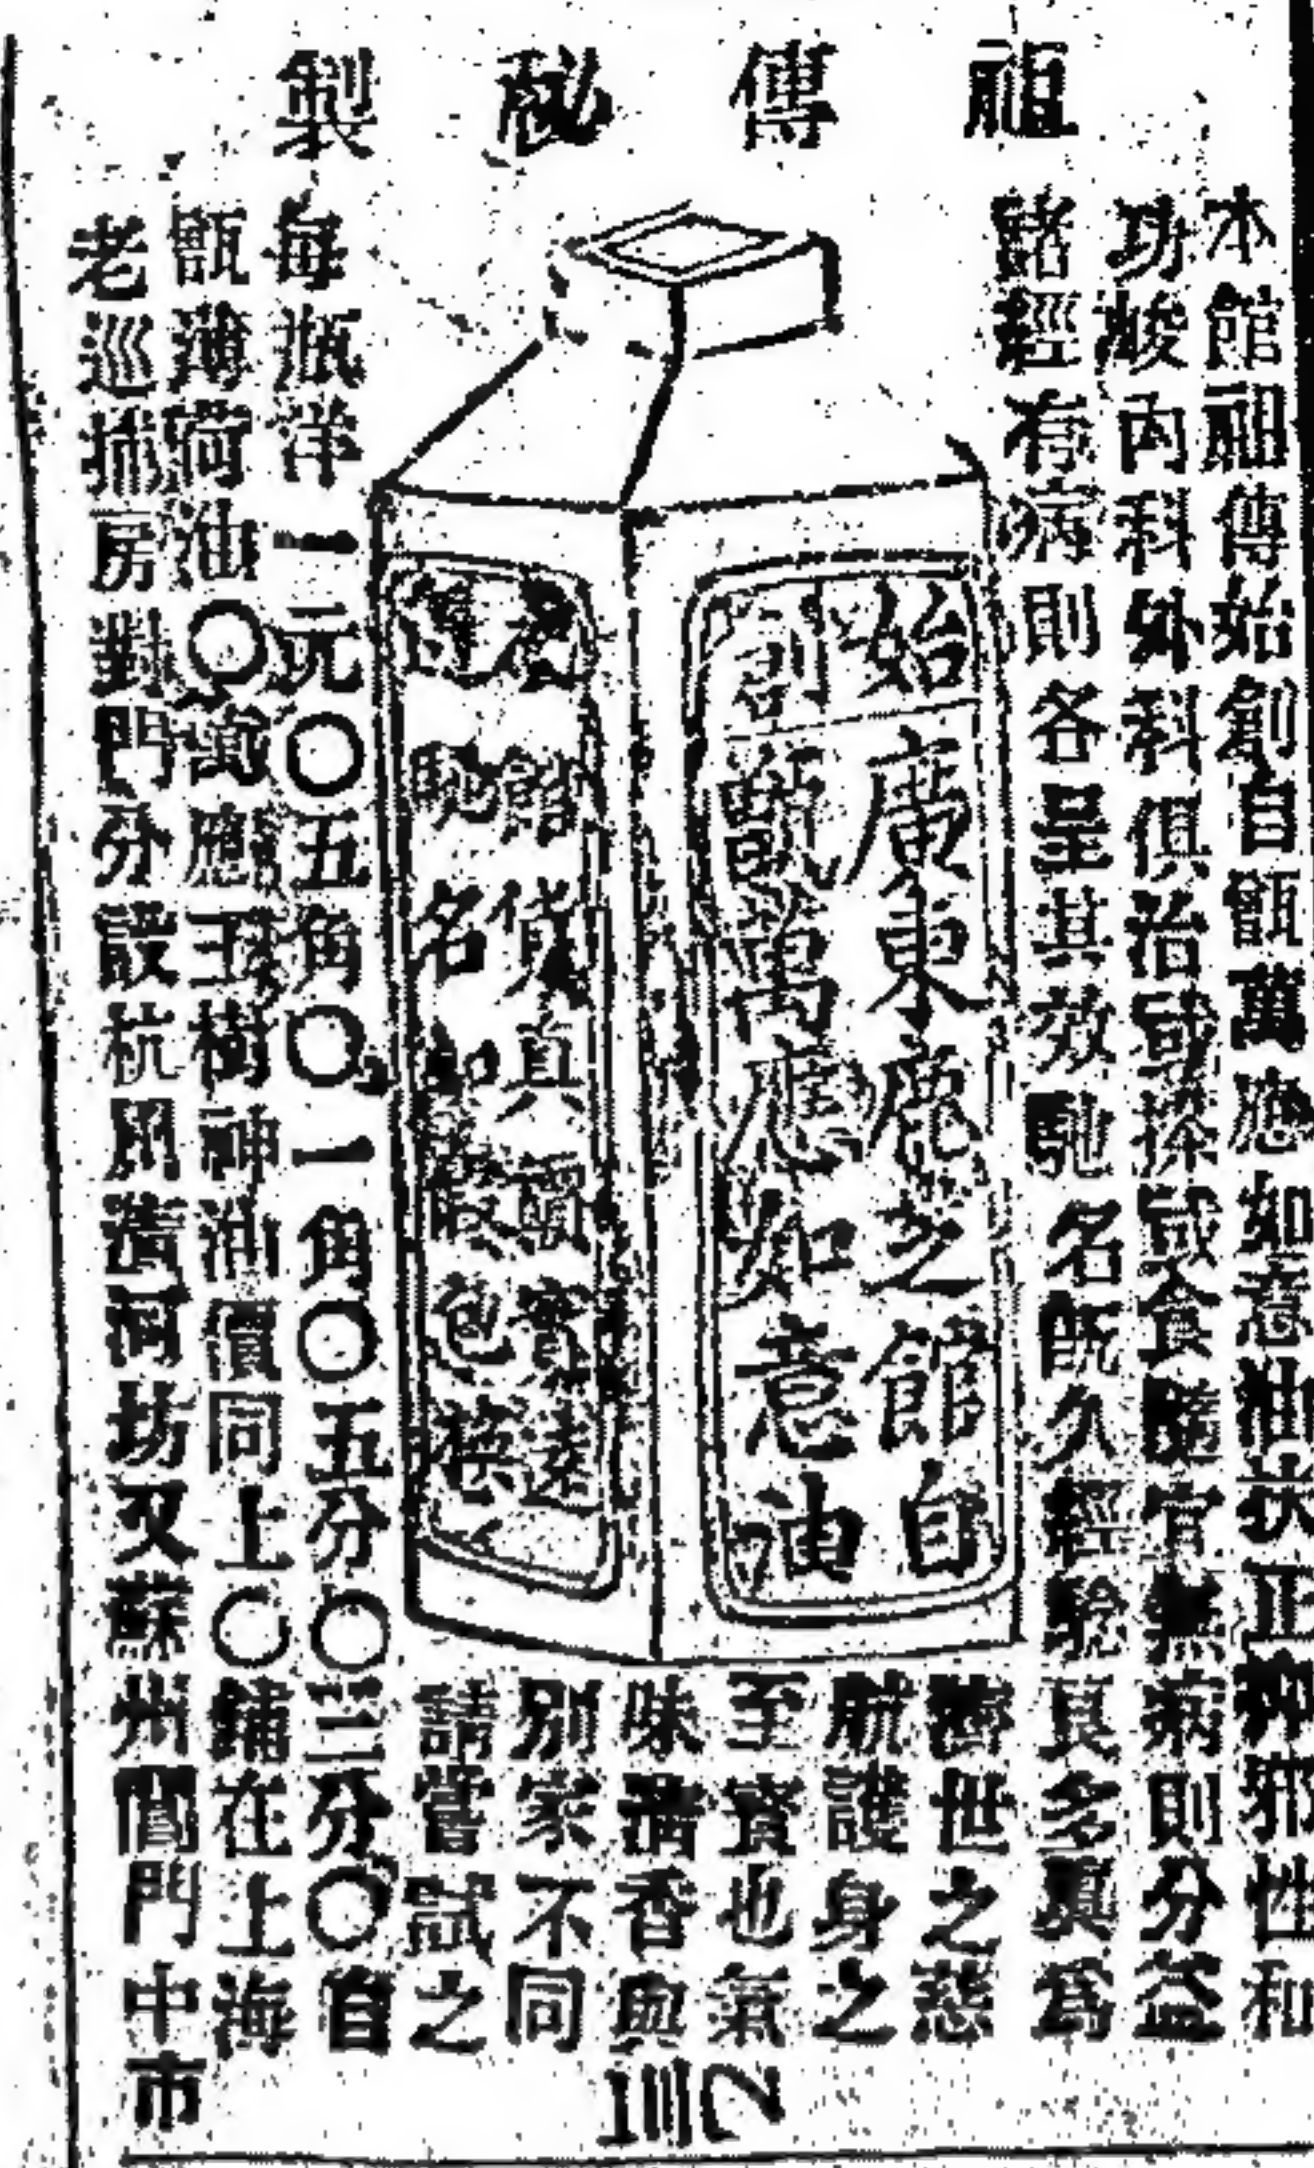 祖傳秘製
本館祖傳始創自甑萬應如意油扶正抑邪性和
功峻內科外科俱治或搽或食隨宜無病則分益
諸經有病則各呈其效馳名既久經驗良多眞爲
濟世之慈
航護身之
至寳也氣
味清香與
別家不同
請嘗試之
始創
廣東鹿芝館自
甑萬應如意油
老館貨真價實遠
馳名如假包換
每瓶洋一元〇五角〇一角〇五分〇三分〇自
甑薄荷油〇萬應玉樹神油價同上〇鋪在上海
老巡捕房對門分設杭州清河坊又蘇州閶門中市